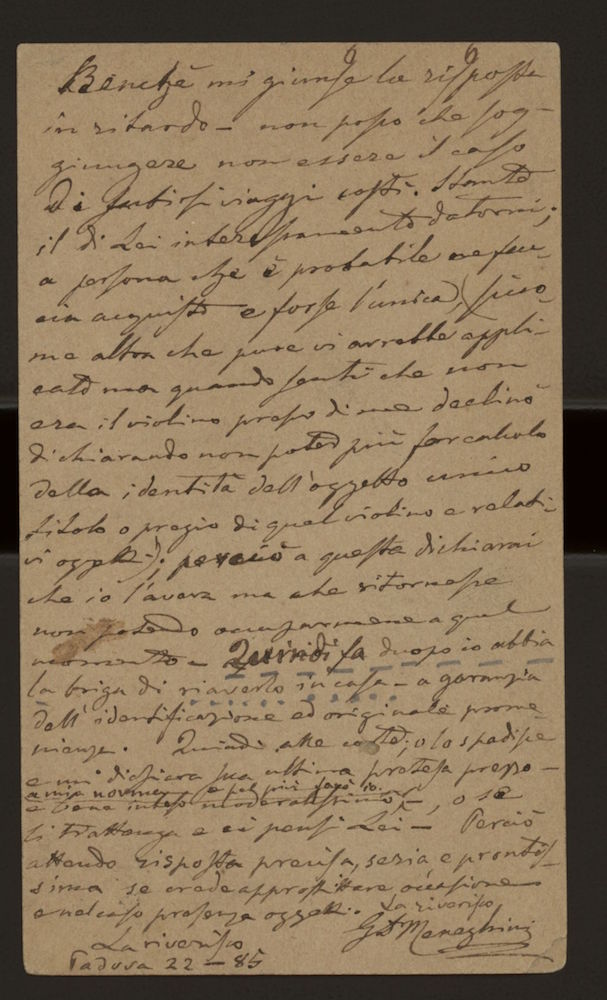 Benchè mi giunse la risposta
in ritardo – non posso che sog-
giungere non essere il caso
di viaggi costì. Stante
il di Lei interessamento datorni;
a persona che è probabile ne fac-
cia acquisto e forse l'unica (sico-
me altra che pure vi avrebbe appli-
cato ma quando sentì che non
era il violino presso di me declinò
dichiarando non poter più far calcolo
della identità dell'oggetto unico
titolo o pregio di quel violino e relati-
vi oggetti); perciò a questa dichiarai
che io l'avea ma che ritornasse
non potendo occuparmene a quel
momento – Quindi fa duopo io abbia
la briga di riaverlo in casa – a garanzia
dell'identificazione ed originale prove-
nienza. Quindi alle corte; o lo spedisce
e mi dichiara sua ultima pretesa prezzo –
a mia norma, e pel più farò io.
e bene inteso moderatissimo, –, o se
li trattenga e ci pensi Lei – Perciò
attendo risposta precisa, seria e prontis-
sima se crede approfittare occasione
e nel caso presenza oggetti. La riverisco
La riverisco
Meneghini
Padova 22 – 85